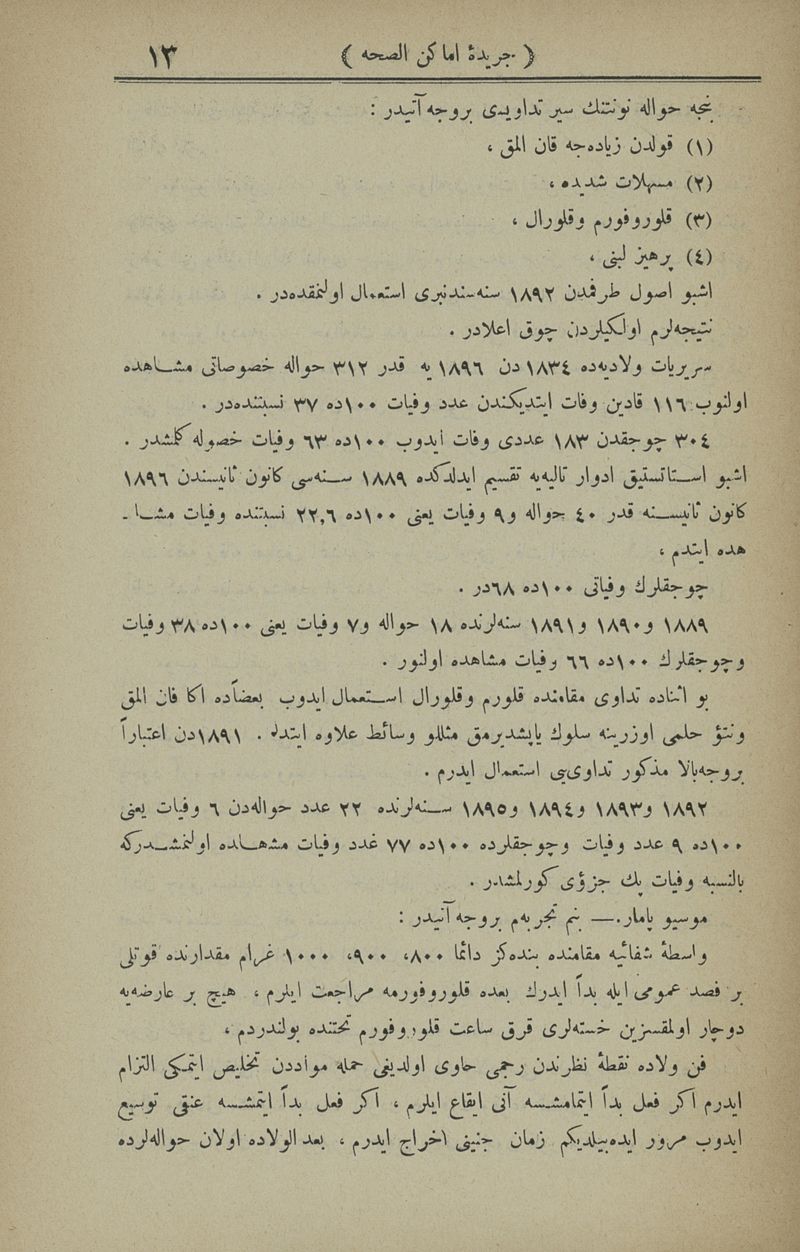 ﴿ جريدۀ اماكن الصحه ﴾ ١٣
بنجه حواله نونتنك سير تداويدى بروجه آتيدر :
(١) قولدن زياده‌جه قان المق ،
(٢) مسهلات شديده ،
(٣) قلوروفورم وقلورال ،
(٤) پرهيز لبنى ،
اشبو اصول طرفمدن ١٨٩٢ سنه‌سندنبرى استعمال اولنمقده‌در .
نتيجه‌لرم اولكيلردن چوق اعلادر .
سريريات ولاديه‌ده ١٨٣٤ دن ١٨٩٦ يه قدر ٣١٢ حواله خصوصاتى مشاهده
اولنوب ١١٦ قادين وفات ايتديكندن عدد وفيات ١٠٠ده ٣٧ نسبتنده‌در .
٣٠٤ چوجقدن ١٨٣ عددى وفات ايدوب ١٠٠ده ٦٣ وفيات خصوله كلمشدر .
اشبو استاتستيق ادوار تاليه‌يه تقسيم ايدلدكده ١٨٨٩ سنه‌سى كانون ثانيسندن ١٨٩٦
كانون ثانيسنه قدر ٤٠ حواله و٩ وفيات يعنى ١٠٠ده ٢٢,٦ نسبتنده وفيات مشا ـ
هده ايتدم ،
چوجقلرك وفياتى ١٠٠ده ٦٨در .
١٨٨٩ و١٨٩٠ و١٨٩١ سنه‌لرنده ١٨ حواله و٧ وفيات يعنى ١٠٠ده ٣٨ وفيات
وچوجقلرك ١٠٠ده ٦٦ وفيات مشاهده اولنور .
بو اثناده تداوى مقامنده قلورم وقلورال استعمال ايدوب بعضاًده اكا قان المق
ونتؤ حلمى اوزرينه سلوك ياپشديرمق مثللو وسائط علاوه ايتدم . ١٨٩١دن اعتباراً
بروجه‌بالا مذكور تداوى‌يى استعمال ايدرم .
١٨٩٢ و١٨٩٣ و١٨٩٤ و١٨٩٥ سنه‌لرنده ٢٢ عدد حواله‌دن ٦ وفيات يعنى
١٠٠ده ٩ عدد وفيات وچوجقلرده ١٠٠ده ٧٧ غدد وفيات مشهاده اولنمشدركه
بالنسبه وفيات پك جزؤى كورلمشدر .
موسيو پامار.— بنم تجربه‌م بروجه آتيدر :
واسطۀ شفائيه مقامنده بنده‌كز دائما ٨٠٠، ٩٠٠، ١٠٠٠ غرام مقدارنده قوتلى
بر فصد عمومى ايله بدأ ايدرك بعده قلوروفورمه مراجعت ايلرم ، هيچ بر عارضه‌يه
دوچار اولمقسزين خسته‌لرى قرق ساعت قلوروفورم تحتنده بولندردم ،
فن ولاده نقطۀ نظرندن رحمى حاوى اولديغى حمله موادdن تخليص ايتمكى التزام
ايدرم اكر فعل بدأ ايتمامشسه آنى ايقاع ايلرم ، اكر فعل بدأ ايتمشسه عنقى توسيع
ايدوب مرور ايده‌بيلديكم زمان جنينى اخراج ايدرم ، بعد الولاده اولان حواله‌لرده